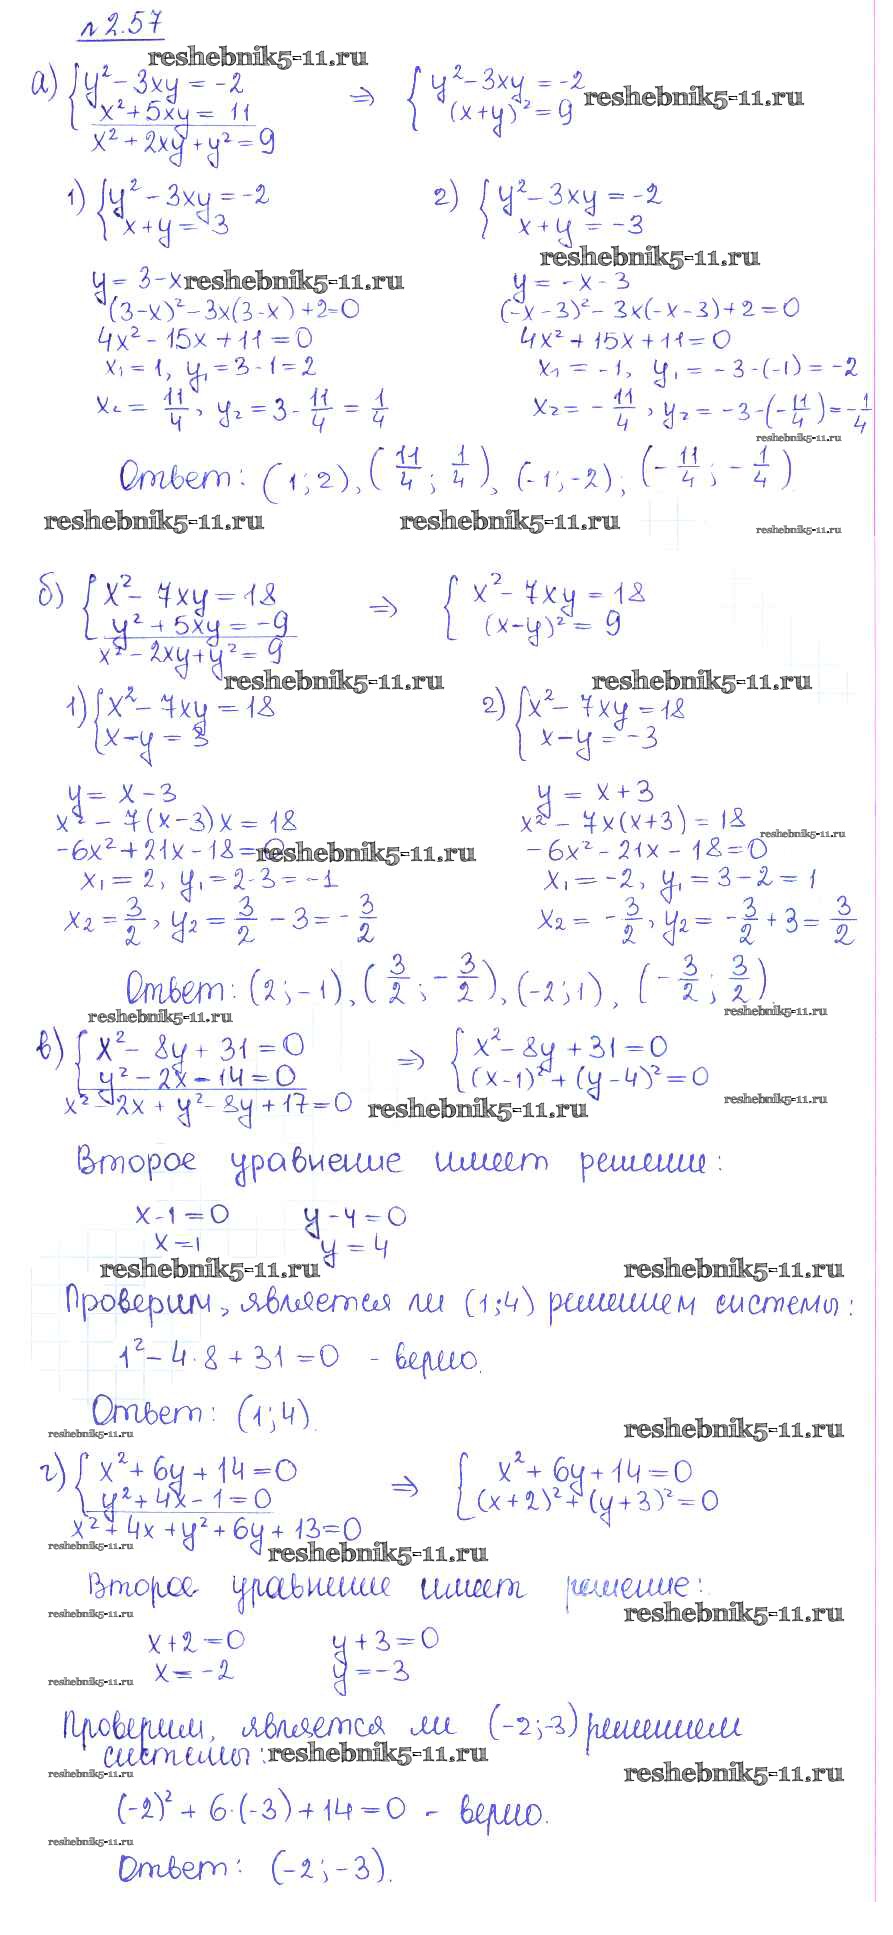 № 2.57
reshebnik5-11.ru
а) { y² - 3xy = -2 ⇒ { y² - 3xy = -2
x² + 5xy = 11 (x+y)² = 9 reshebnik5-11.ru
x² + 2xy + y² = 9
1) { y² - 3xy = -2 2) { y² - 3xy = -2
x + y = 3 x + y = -3
reshebnik5-11.ru
y = 3 - x reshebnik5-11.ru y = -x - 3
(3-x)² - 3x(3-x) + 2 = 0 (-x-3)² - 3x(-x-3) + 2 = 0
4x² - 15x + 11 = 0 4x² + 15x + 11 = 0
x₁ = 1, y₁ = 3 - 1 = 2 x₁ = -1, y₁ = -3 - (-1) = -2
x₂ = 11/4, y₂ = 3 - 11/4 = 1/4 x₂ = -11/4, y₂ = -3 - (-11/4) = -1/4
reshebnik5-11.ru
Ответ: (1; 2), (11/4; 1/4), (-1; -2); (-11/4; -1/4)
reshebnik5-11.ru reshebnik5-11.ru reshebnik5-11.ru
б) { x² - 7xy = 18 ⇒ { x² - 7xy = 18
y² + 5xy = -9 (x-y)² = 9
x² - 2xy + y² = 9
reshebnik5-11.ru reshebnik5-11.ru
1) { x² - 7xy = 18 2) { x² - 7xy = 18
x - y = 3 x - y = -3
y = x - 3 y = x + 3
x² - 7(x-3)x = 18 x² - 7x(x+3) = 18
reshebnik5-11.ru
-6x² + 21x - 18 = 0 reshebnik5-11.ru -6x² - 21x - 18 = 0
x₁ = 2, y₁ = 2 - 3 = -1 x₁ = -2, y₁ = 3 - 2 = 1
x₂ = 3/2, y₂ = 3/2 - 3 = -3/2 x₂ = -3/2, y₂ = -3/2 + 3 = 3/2
Ответ: (2; -1), (3/2; -3/2), (-2; 1), (-3/2; 3/2).
reshebnik5-11.ru reshebnik5-11.ru
в) { x² - 8y + 31 = 0 ⇒ { x² - 8y + 31 = 0
y² - 2x - 14 = 0 (x-1)² + (y-4)² = 0
x² - 2x + y² - 8y + 17 = 0 reshebnik5-11.ru reshebnik5-11.ru
Второе уравнение имеет решение:
x - 1 = 0 y - 4 = 0
x = 1 y = 4
reshebnik5-11.ru reshebnik5-11.ru
Проверим, является ли (1; 4) решением системы:
1² - 4·8 + 31 = 0 - верно.
Ответ: (1; 4).
reshebnik5-11.ru reshebnik5-11.ru
г) { x² + 6y + 14 = 0 ⇒ { x² + 6y + 14 = 0
y² + 4x - 1 = 0 (x+2)² + (y+3)² = 0
x² + 4x + y² + 6y + 13 = 0
reshebnik5-11.ru reshebnik5-11.ru
Второе уравнение имеет решение:
reshebnik5-11.ru reshebnik5-11.ru
x + 2 = 0 y + 3 = 0
x = -2 y = -3
reshebnik5-11.ru
Проверим, является ли (-2; -3) решением
системы: reshebnik5-11.ru
reshebnik5-11.ru reshebnik5-11.ru
(-2)² + 6·(-3) + 14 = 0 - верно.
reshebnik5-11.ru
Ответ: (-2; -3).